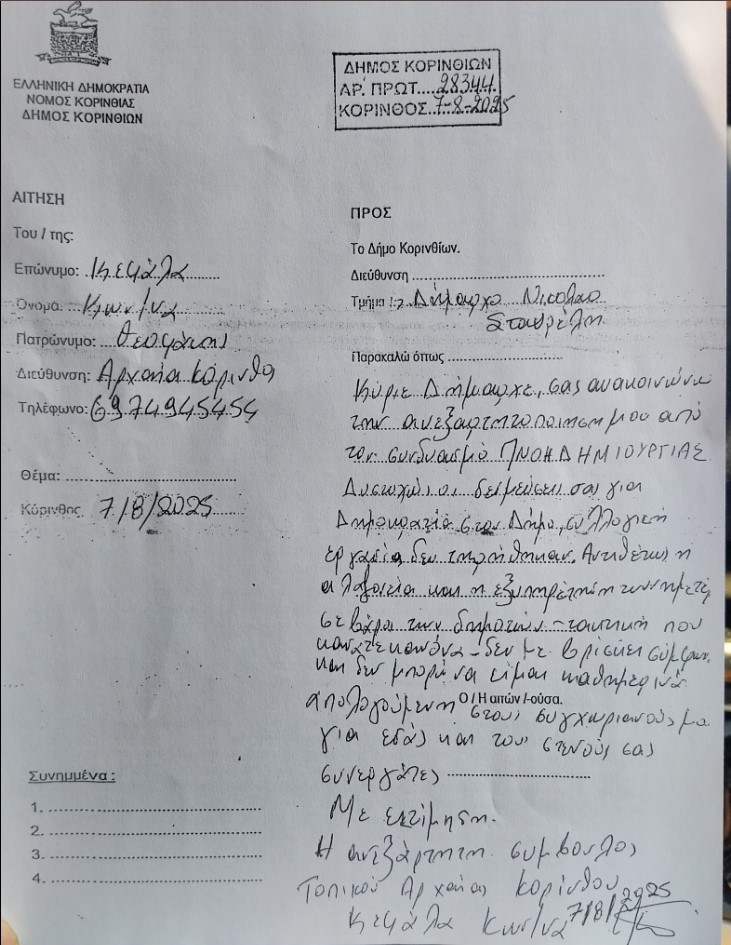 ΕΛΛΗΝΙΚΗ ΔΗΜΟΚΡΑΤΙΑ
ΝΟΜΟΣ ΚΟΡΙΝΘΙΑΣ
ΔΗΜΟΣ ΚΟΡΙΝΘΙΩΝ
ΔΗΜΟΣ ΚΟΡΙΝΘΙΩΝ
ΑΡ. ΠΡΩΤ....28344
ΚΟΡΙΝΘΟΣ..7-8-2025
ΑΙΤΗΣΗ
Του / της:
Επώνυμο: Κεφάλα
Όνομα: Κων/να
Πατρώνυμο: Θεοφάνης
Διεύθυνση: Αρχαία Κόρινθο
Τηλέφωνο: 6974945454
Θέμα:
Κόρινθος 7/8/2025
ΠΡΟΣ
Το Δήμο Κορινθίων.
Διεύθυνση
Τμήμα : Δήμαρχο Νικόλαο
Σταυρέλη
Παρακαλώ όπως
Κύριε Δήμαρχε, σας ανακοινώνω
την ανεξαρτητοποίηση μου από
τον συνδυασμό ΠΝΟΗ ΔΗΜΙΟΥΡΓΙΑΣ
Δυστυχώς οι δεσμεύσεις σας για
Δημοκρατία στον Δήμο, συλλογική
εργασία δεν τηρήθηκαν. Αντιθέτως η
αλαζονεία και η εξυπηρέτηση των ημετέρ
σε βάρος των δημοτών - τακτική που
κάνατε κανόνα - δεν με βρίσκει σύμφων
και δεν μπορώ να είμαι καθημερινά
απολογούμενη Ο / Η αιτών /-ούσα. στους συγχωριανούς μο
για εσάς και τους στενούς σας
συνεργάτες
Με εκτίμηση.
Η ανεξάρτητη συμβουλος
Τοπικού Αρχαίας Κορίνθου
Κεφάλα Κων/να 7/8/2025
Συνημμένα :
1.
2.
3.
4.